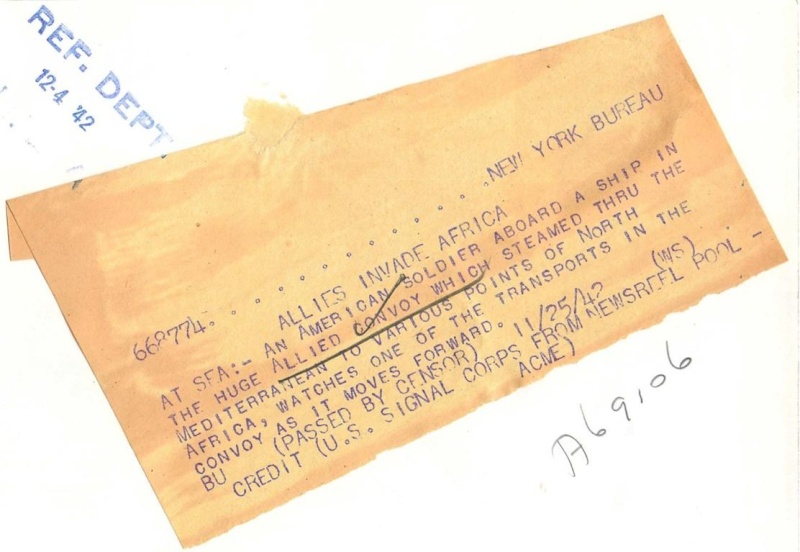 REF. DEPT
12-4 '42
668774. . . . . . . . . . . . . . NEW YORK BUREAU
ALLIES INVADE AFRICA
AT SEA:- AN AMERICAN SOLDIER ABOARD A SHIP IN
THE HUGE ALLIED CONVOY WHICH STEAMED THRU THE
MEDITERRANEAN TO VARIOUS POINTS OF NORTH
AFRICA, WATCHES ONE OF THE TRANSPORTS IN THE
CONVOY AS IT MOVES FORWARD.
BU (PASSED BY CENSOR) 11/25/42 (WS)
CREDIT (U.S. SIGNAL CORPS FROM NEWSREEL POOL -
ACME)
A69106